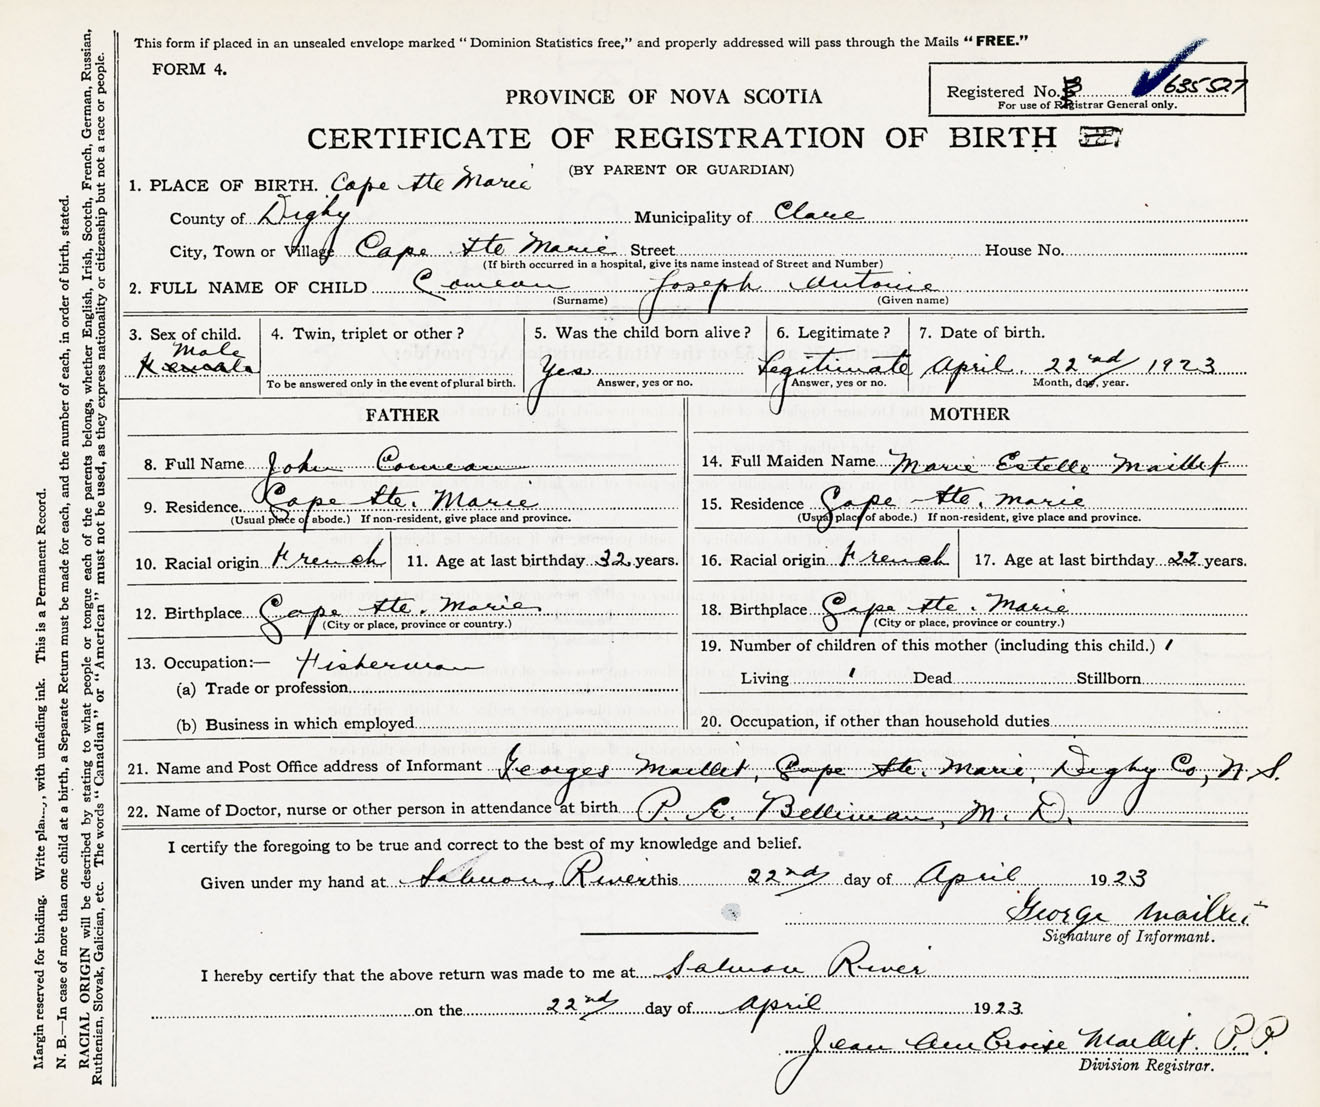 This form if placed in an unsealed envelope marked “Dominion Statistics free,” and properly addressed will pass through the Mails “FREE.”
FORM 4.
Registered No. 635527
For use of Registrar General only.
PROVINCE OF NOVA SCOTIA
CERTIFICATE OF REGISTRATION OF BIRTH
(BY PARENT OR GUARDIAN)
1. PLACE OF BIRTH. Cape Ste Marie
County of Digby Municipality of Clare
City, Town or Village Cape Ste Marie Street House No.
(If birth occurred in a hospital, give its name instead of Street and Number)
2. FULL NAME OF CHILD Comeau Joseph Antoine
(Surname) (Given name)
3. Sex of child. 4. Twin, triplet or other? 5. Was the child born alive? 6. Legitimate? 7. Date of birth.
Male
Female Yes Legitimate April 22nd 1923
To be answered only in the event of plural birth. Answer, yes or no. Answer, yes or no. Month, day, year.
FATHER MOTHER
8. Full Name John Comeau 14. Full Maiden Name Marie Estelle Maillet
9. Residence Cape Ste. Marie 15. Residence Cape Ste. Marie
(Usual place of abode.) If non-resident, give place and province. (Usual place of abode.) If non-resident, give place and province.
10. Racial origin French 11. Age at last birthday 32 years. 16. Racial origin French 17. Age at last birthday 22 years.
12. Birthplace Cape Ste. Marie 18. Birthplace Cape Ste. Marie
(City or place, province or country.) (City or place, province or country.)
13. Occupation:— Fisherman 19. Number of children of this mother (including this child.) 1
(a) Trade or profession Living 1 Dead Stillborn
(b) Business in which employed 20. Occupation, if other than household duties
21. Name and Post Office address of Informant Georges Maillet, Cape Ste. Marie, Digby Co, N. S.
22. Name of Doctor, nurse or other person in attendance at birth P. E. Belliveau, M. D.
I certify the foregoing to be true and correct to the best of my knowledge and belief.
Given under my hand at Salmon River this 22nd day of April 1923
George Maillet
Signature of Informant.
I hereby certify that the above return was made to me at Salmon River
on the 22nd day of April 1923.
Jean Maillet. P. P.
Division Registrar.
Margin reserved for binding. Write with unfading ink. This is a Permanent Record.
N. B.—In case of more than one child at a birth, a Separate Return must be made for each, and the number of each, in order of birth, stated.
RACIAL ORIGIN will be described by stating to what people or tongue each of the parents belongs, whether English, Irish, Scotch, French, German, Russian,
Ruthenian, Slovak, Galician, etc. The words “Canadian” or “American” must not be used, as they express nationality or citizenship but not a race or people.